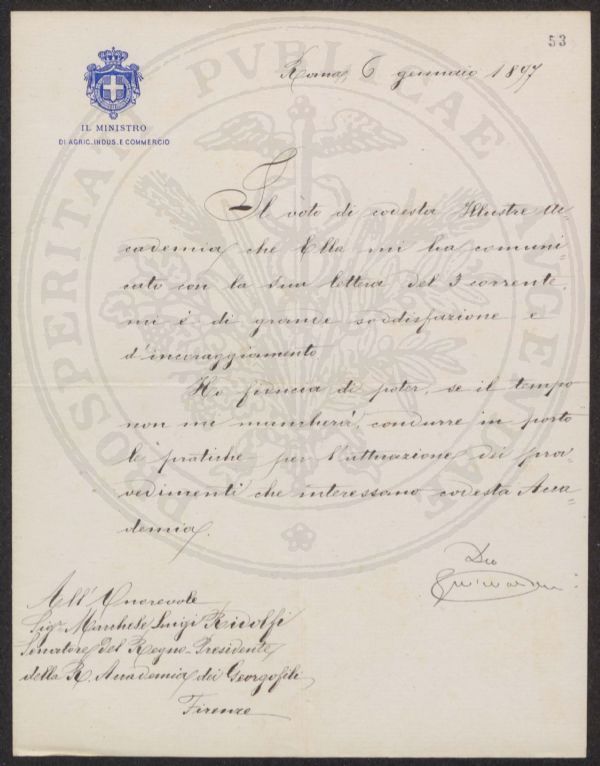 53
Roma, 6 gennaio 1897
IL MINISTRO
DI AGRIC. INDUS. E COMMERCIO
Il voto di codesta Illustre Ac=
cademia che Ella mi ha comuni=
cato con la sua lettera del 3 corrente,
mi è di grande soddisfazione e
d'incoraggiamento
Ho fiducia di poter, se il tempo
non mi mancherà, condurre in porto
le pratiche per l'attuazione dei prov=
vedimenti che interessano codesta Acca=
demia.
Dev
Guicciardini
All'Onorevole
Sigr Marchese Luigi Ridolfi
Senatore del Regno - Presidente
della R. Accademia dei Georgofili
Firenze
PROSPERITATI PVBLICAE AVGENDAE